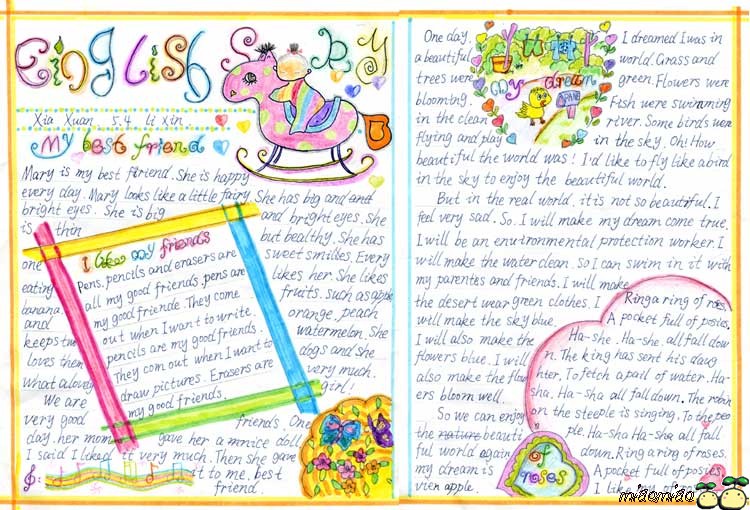 English Sky
Xia Xuan 5.4 Li Xin
My best friend
Mary is my best friend. She is happy
every day. Mary looks like a little fairy. She has big and and
bright eyes. She is big and bright eyes. She
is thin but healthy. She has
sweet smiles. Every
one likes her. She likes
eating fruits. such as apple
banana. orange. peach
and watermelon. She
keeps two dogs and she
loves them very much.
what a lovely girl!
We are friends. One
very good
day. her mom gave her a mnice doll
I said I liked it very much. Then she gave
it to me. best
friend.
I like my friends
Pens, pencils and erasers are
all my good friends. pens are
my good friende. They come
out when I want to write.
pencils are my good friends.
They com out when I want to
draw pictures. Erasers are
my good friends.
My dream
One day, I dreamed I was in
a beautiful world. Grass and
trees were green. Flowers were
blooming. Fish were swimming
in the clean river. Some birds were
flying and play in the sky. Oh! How
beautiful the world was! I'd like to fly like a bird
in the sky to enjoy the beautiful world.
But in the real world. it is not so beautiful. I
feel very sad. So. I will make my dream come true.
I will be an environmental protection worker. I
will make the water clean. So I can swim in it with
my parentes and friends. I will make
the desert wear green clothes. I
will make the sky blue.
I will also make the
flowers blue. I will
also make the flow
ers bloom well.
So we can enjoy
the nature beauti
ful world again
my dream is
vien apple.
Ring a ring of roses.
A pocket full of posies.
Ha-she. Ha-she. all fall dow
n. The king has sent his daug
hter. To fetch a pail of water. Ha-
sha. Ha-sha all fall down. The robin
on the steeple is singing. To the peo
ple. Ha-sha Ha-sha all fall
down. Ring a ring of roses.
A pocket full of posies
I like my of roses
of
roses
miaomiao